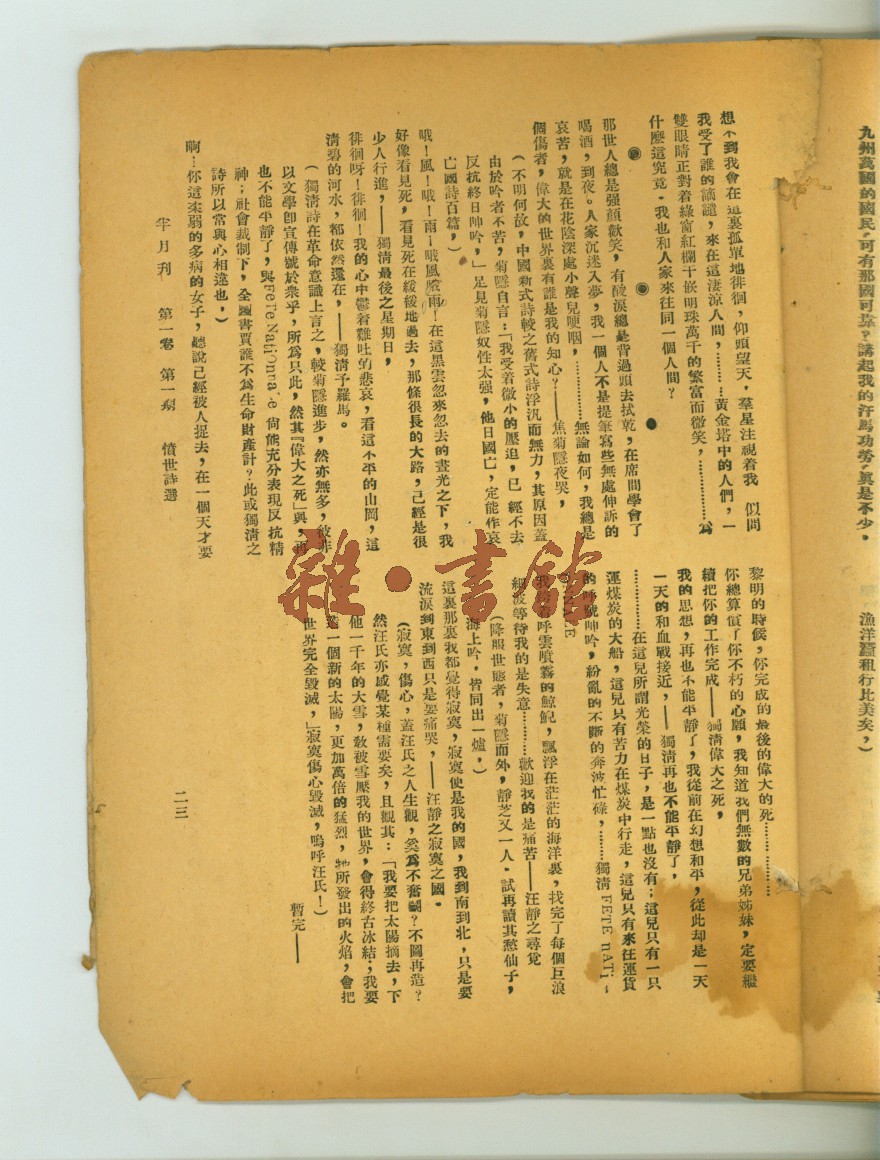 九州萬國的國民，可有那國可靠？講起我的汗馬功勞，真是不少。
漁洋蠶租行比美矣，）
想不到我會在這裏孤單地徘徊，仰頭望天，羣星注視着我　似問
我受了誰的譴謫，來在這淒涼人間，………黃金塔中的人們，一
雙眼睛正對着綠窗紅欄干嵌明珠萬千的繁富而微笑，…………為
什麽這究竟，我也和人家來往同一個人間？
那世人總是强顏歡笑，有酸淚總是背過頭去拭乾，在席間學會了
喝酒，到夜。人家沉迷入夢，我一個人不是提筆寫些無處伸訴的
哀苦，就是在花陰深處小聲兒哽咽，…………無論如何，我總是
個傷者，偉大的世界裏有誰是我的知心？——焦菊隱夜哭，
（不明何故，中國新式詩較之舊式詩浮汎而無力，其原因蓋
由於吟者不苦，菊隱自言：「我受着微小的壓迫，已經不去
反抗終日呻吟，」足見菊隱奴性太强，他日國亡，定能作哀
亡國詩百篇，）
哦！風！哦！雨！哦風陰雨！在這黑雲忽來忽去的晝光之下，我
好像看見死，看見死在緩緩地過去，那條很長的大路，已經是很
少人行進，——獨清最後之星期日，
徘徊呀！徘徊！我的心中鬱着難吐的悲哀，看這不平的山岡，這
清碧的河水，都依然還在，——獨清予羅馬。
（獨清詩在革命意識上言之，較菊隱進步，然亦無多，彼非
以文學卽宣傳號於衆乎，所為只此，然其『偉大之死』與，再
也不能平靜了，與FeTe NaTiOnna'e 尙能充分表現反抗精
神；社會裁制下，全國書賈誰不為生命財產計？此或獨清之
詩所以常與心相違也，）
啊…你這柔弱的多病的女子，聽說已經被人捉去，在一個天才要
黎明的時候，你完成的最後的偉大的死……………
你總算償了你不朽的心願，我知道我們無數的兄弟姊妹，定要繼
續把你的工作完成——獨清偉大之死，
我的思想，再也不能平靜了，我從前在幻想和平，從此却是一天
一天的和血戰接近，——獨清再也不能平靜了，
………在這兒所謂光榮的日子，是一點也沒有；這兒只有一只
運煤炭的大船，這兒只有苦力在煤炭中行走，這兒只有來往運貨
的呼號呻吟，紛亂的不斷的奔波忙碌，………獨清FETE nATi-
呼雲噴霧的鯨鯢，飄浮在茫茫的海洋裏，找完了每個巨浪
細波等待我的是失意………歡迎我的是痛苦——汪靜之尋覓
（降服世態者，菊隱而外，靜芝又一人，試再讀其愁仙子，
海上吟，皆同出一爐，）
這裏那裏我都覺得寂寞，寂寞便是我的國，我到南到北，只是要
流淚到東到西只是要痛哭，——汪靜之寂寞之國。
（寂寞，傷心，蓋汪氏之人生觀，奚為不奮鬭？不圖再造？
然汪氏亦感覺某種需要矣，且觀其：「我要把太陽摘去，下
他一千年的大雪，敎被雪壓我的世界，會得終古冰結；我要
一個新的太陽，更加萬倍的猛烈，牠所發出的火焰，會把
世界完全毀滅，」寂寞傷心毀滅，嗚呼汪氏！）
暫完——
半月刊　第一卷　第一期　憤世詩選
二三
雜·書館